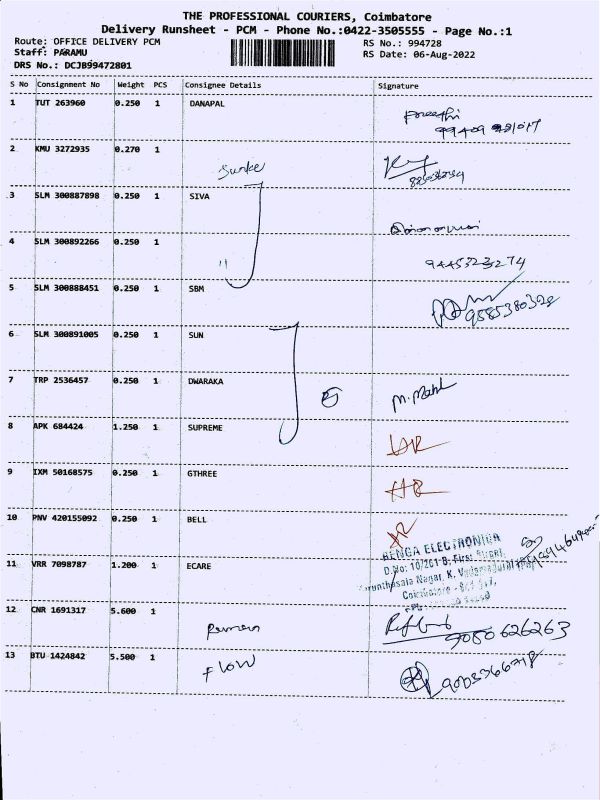 THE PROFESSIONAL COURIERS, Coimbatore
Delivery Runsheet - PCM - Phone No.:0422-3505555 - Page No.:1
Route: OFFICE DELIVERY PCM
RS No.: 994728
Staff: PARAMU
RS Date: 06-Aug-2022
DRS No.: DCJB99472801
S No Consignment No Weight PCS Consignee Details Signature
1 TUT 263960 0.250 1 DANAPAL
2 KMU 3272935 0.270 1
3 SLM 300887898 0.250 1 SIVA
4 SLM 300892266 0.250 1
9445323274
5 SLM 300888451 0.250 1 SBM
9585380328
6 SLM 300891005 0.250 1 SUN
7 TRP 2536457 0.250 1 DWARAKA
8 APK 684424 1.250 1 SUPREME
9 IXM 50168575 0.250 1 GTHREE
10 PNV 420155092 0.250 1 BELL
RENGA ELECTRONICS
D.No: 10/261 B, First Street,
11 VRR 7098787 1.200 1 ECARE
Nagar, K.
Coimbatore -
12 CNR 1691317 5.600 1
9080626263
13 BTU 1424842 5.500 1 FLOW